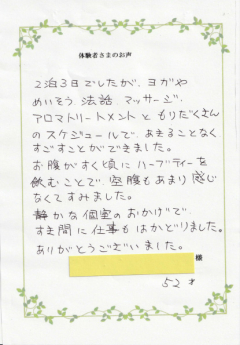 体験者さまのお声
2泊3日でしたが、ヨガや
めいそう、法話、マッサージ、
アロマトリートメントともりだくさん
のスケジュールで、あきることなく
すごすことができました。
お腹がすく頃にハーブティーを
飲むことで、空腹もあまり感じ
なくてすみました。
静かな個室のおかげで、
すき間に仕事もはかどりました。
ありがとうございました。
様
52才